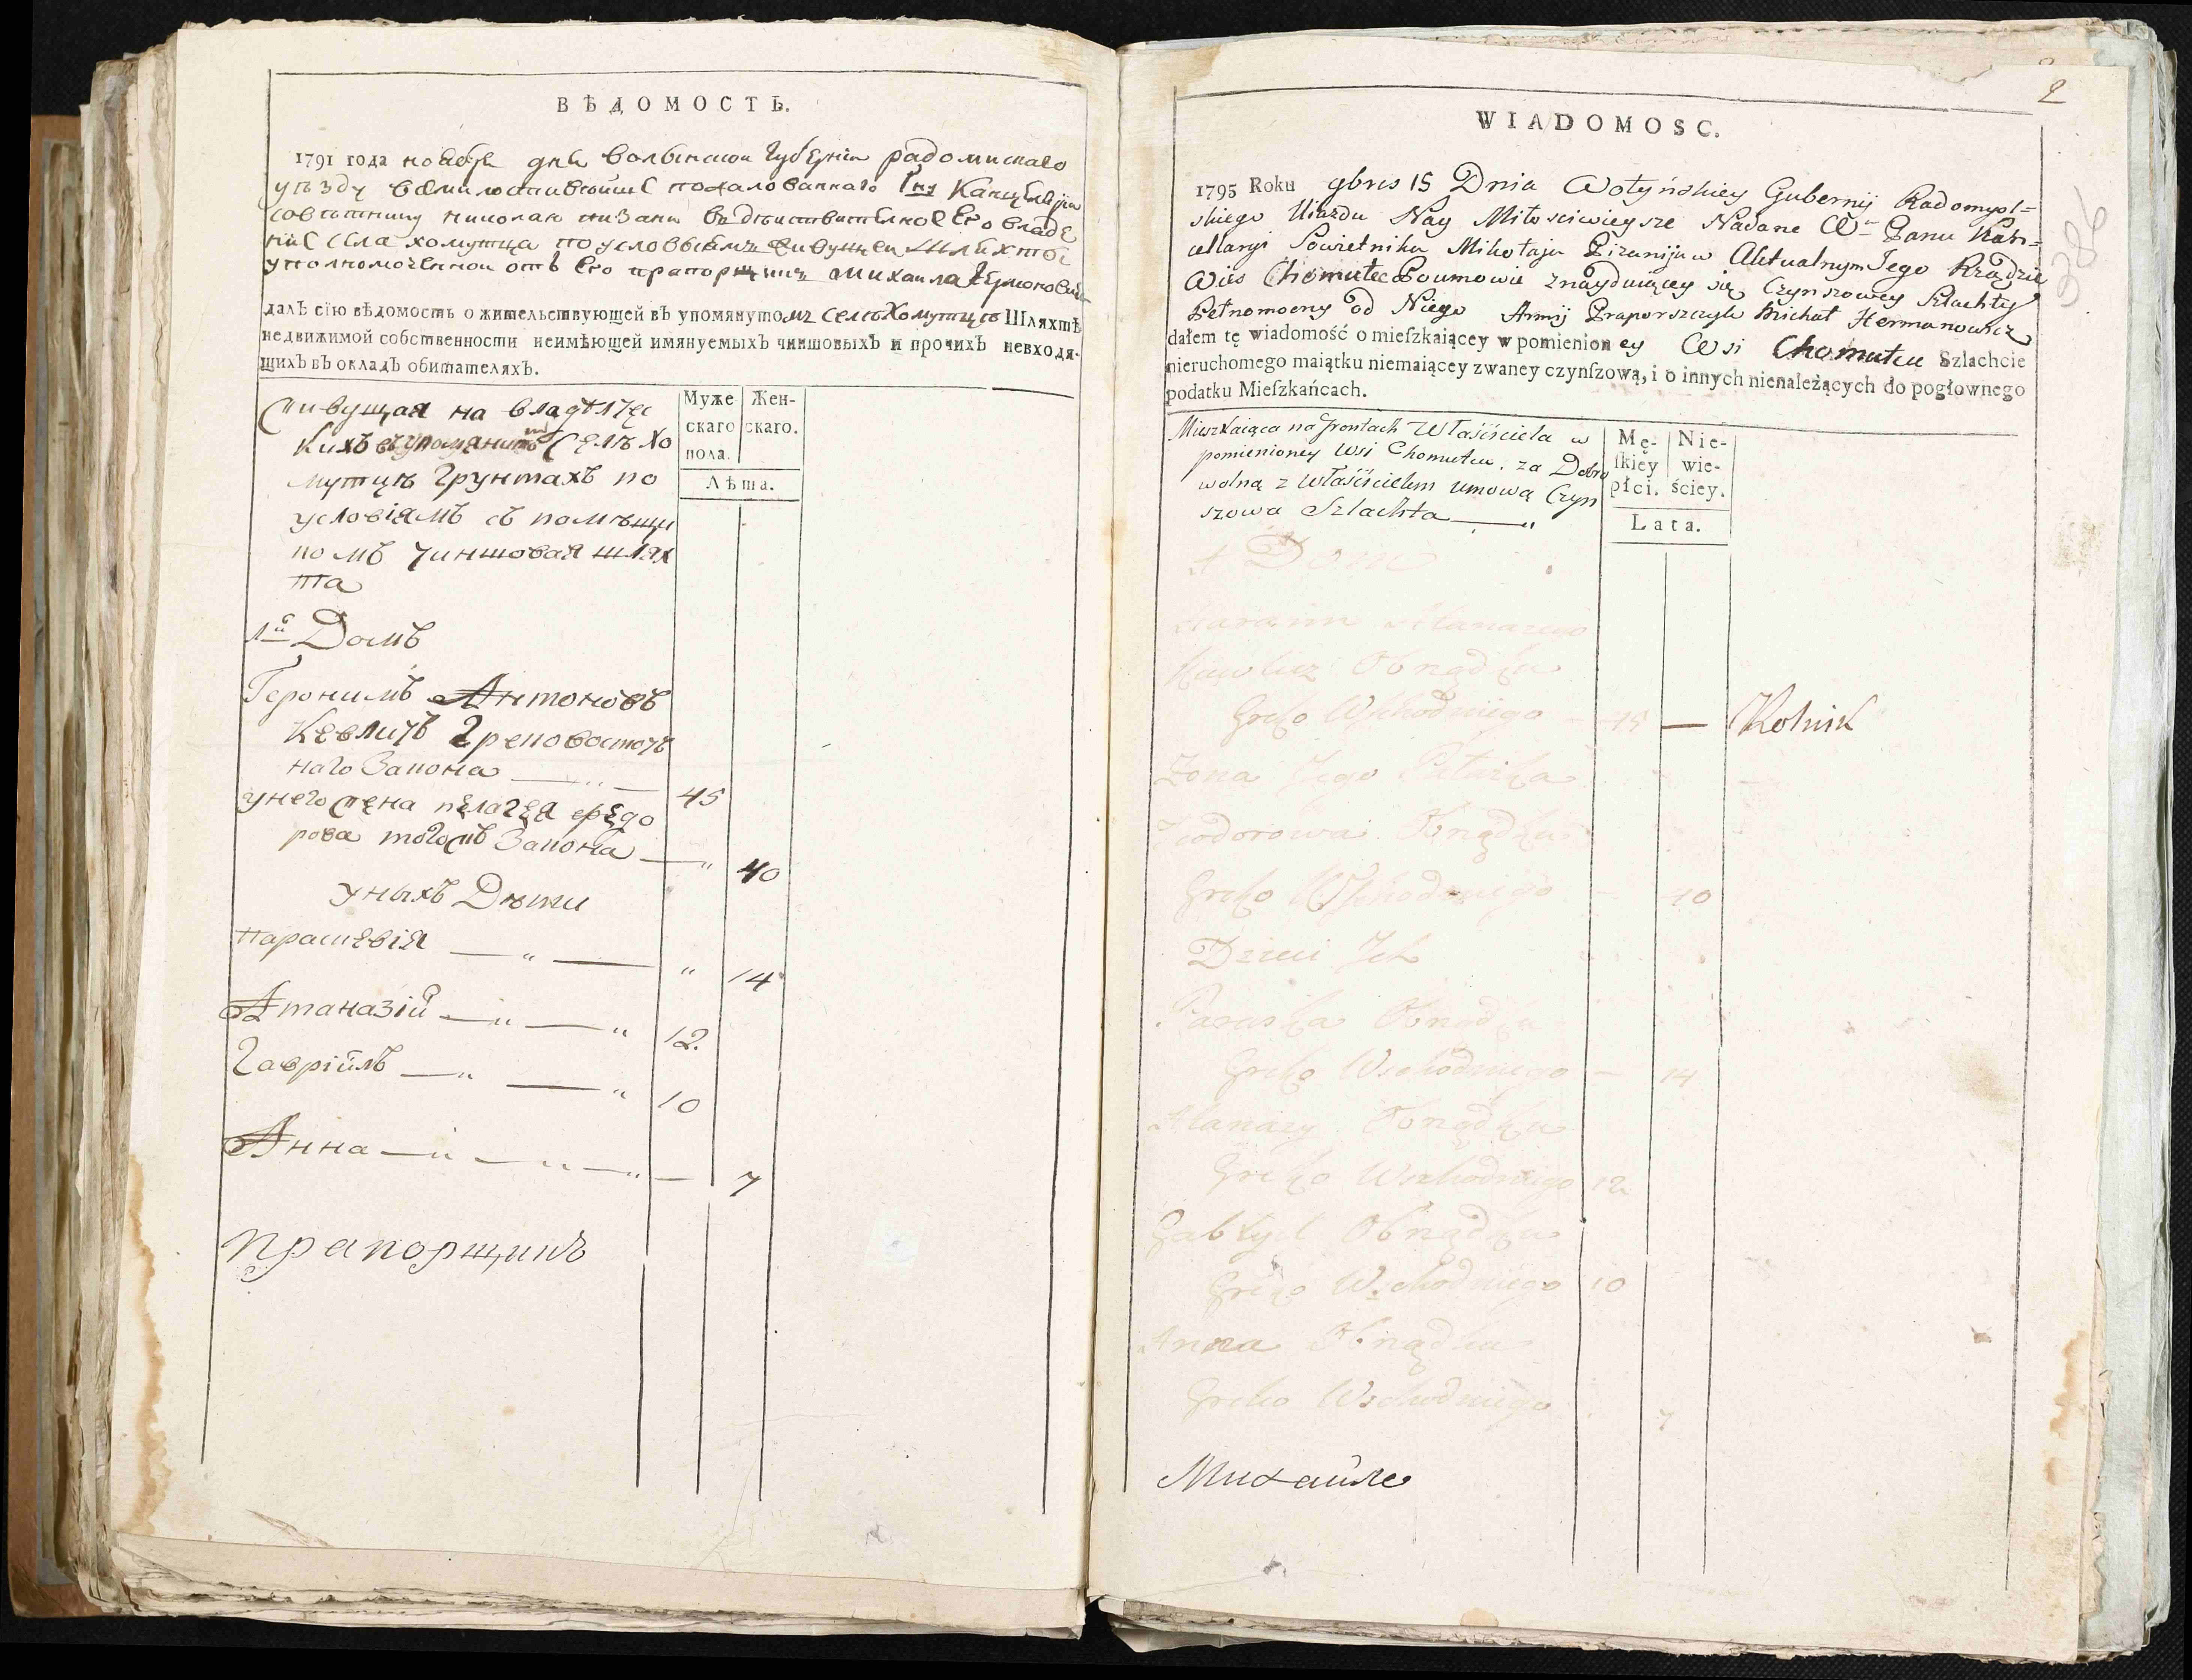 ВѢДОМОСТЬ.
1791 года ноября дня волынской губерніи радомискаго
уѣзду всемилостивейше пожалованнаго Канцеляріи
советнику николаю пизани въ действительное его владе
ніе села хомутца по условіямъ живущей шляхтой
уполномоченной отъ его прапорщикъ михаила Ермоновича
далъ сію вѣдомость о жительствующей въ упомянутомъ селѣ Хомутцѣ Шляхтѣ
недвижимой собственности неимѣющей имянуемыхъ чиншовыхъ и прочихъ невходя-
щихъ въ окладъ обитателяхъ.
Муже
скаго
пола.
Жен-
скаго.
Лѣта.
Живущая на владѣлчес
кихъ въ упомянутомъ Селѣ Хо
мутцѣ грунтахъ по
условіямъ съ помѣщи
комъ чиншовая шлях
та
1й Домъ
Геронимъ Антоновъ
Кевличъ Грековосточ
наго Закона — 45
унего жена пелагея федо
рова тогожъ Закона — „ 40
унихъ Дѣти
параскевія — „ — „ 14
Атаназій — „ — „ 12.
Гавріилъ — „ — „ 10
Анна — „ — „ — „ — 7
прапорщикъ
2
386
WIADOMOSC.
1795 Roku 9bris 15 Dnia Wołyńskiey Gubernij Radomysl=
skiego Uiazdu Nay Miłosciwiey sze Nadane W. Panu Kan=
cellaryi Sowietniku Mikołaju Pizaniju w Aktualnym Jego Rządzie
Wies Chomutec Poumowie znayduiącey się Czynszowey Szlachty
Pełnomocny od Niego Armij Praporszczyk Michał Hermanowicz
dałem tę wiadomość o mieſzkaiącey w pomienioney Wsi Chomutcu Szlachcie
nieruchomego maiątku niemaiącey zwaney czynſzową, i o innych nienależących do pogłownego
podatku Mieſzkańcach.
Mieszkaiąca na gruntach Właściciela w
pomienioney Wsi Chomutcu, za Dobro
wolną z właścicielem umową Czyn
szowa Szlachta — „
Mę-
ſkiéy
płci.
Nie-
wie-
ściey.
Lata.
1 Dom
Atanazego
Kewlicz Obrządku
Greko Wschodniego — 45 — Rolnik
Żona Jego
Teodorowa Obrządku
Greko Wschodniego — 40
Dzieci Ich
Paraska Obrządku
Greko Wschodniego — 14
Atanazy Obrządku
Greko Wschodniego 12
Gabryel Obrządku
Greko Wschodniego 10
Anna Obrządku
Greko Wschodniego 7
Михайле